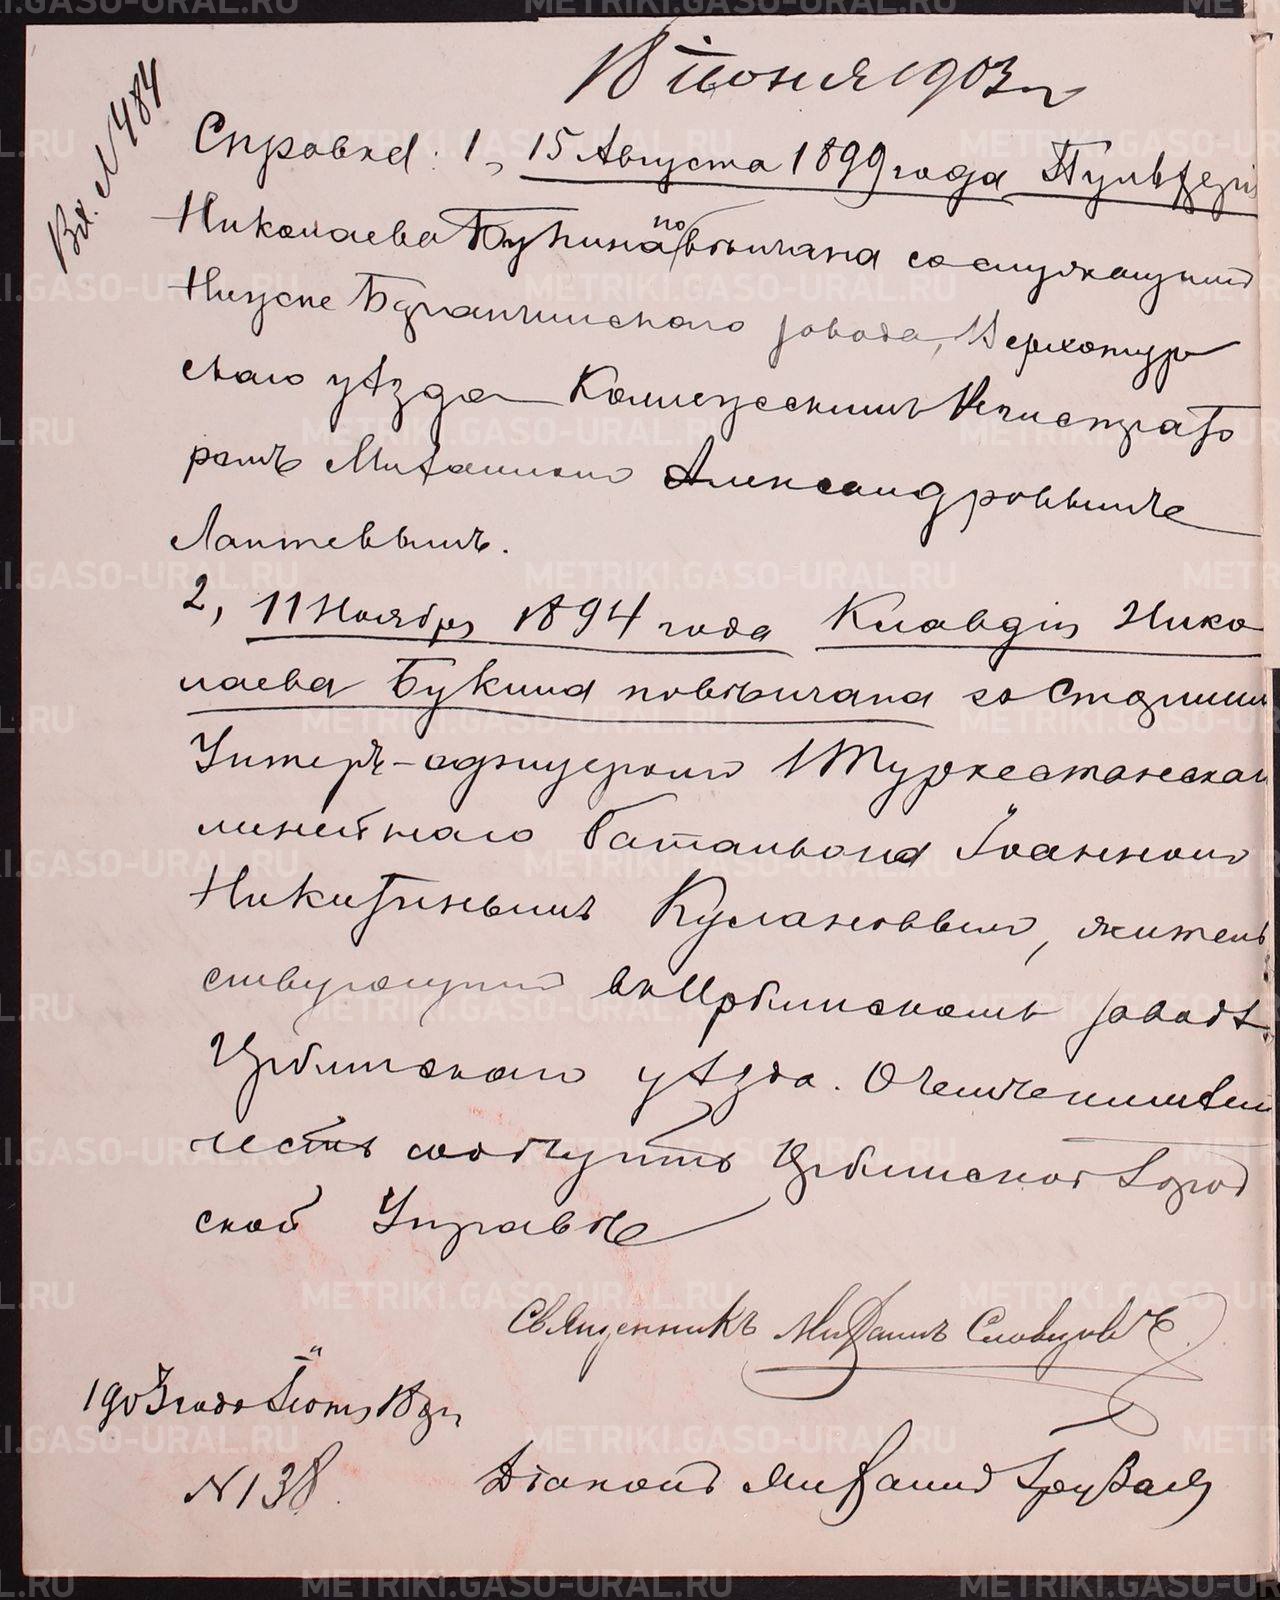 18 іюня 1903 г
Вх. N 484
Справка. 1, 15 Августа 1899 года Пульхерія
Николаева Букина повѣнчана со служащимъ
Нижне Баранчинскаго завода, Верхотур
скаго уѣзда Коллежскимъ Регистрато
ромъ Михаиломъ Александровымъ
Лаптевымъ.
2, 11 Ноября 1894 года Клавдія Нико
лаева Букина повѣнчана со Старшимъ
Унтеръ-офицеромъ 1 Туркестанскаг
линейнаго баталіона Іоанномъ
Никитинымъ
жительствующимъ
ствующимъ въ Ирбитскомъ заводѣ
Ирбитскаго уѣзда. О чемъ
честь сообщить Ирбитской Город
ской Управѣ
Священникъ Михаилъ Словцовъ
1903 года Іюня 18 дн
N 138.
Діаконъ Михаилъ